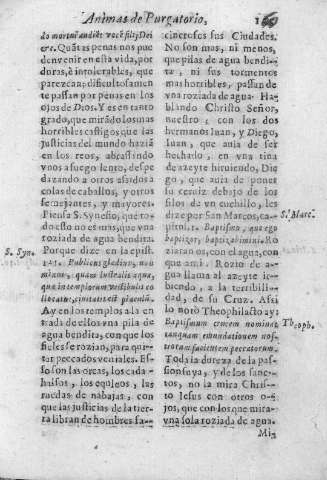 Animas de Purgatorio,
do mortui audiēt vocē filij Dei
&c. Quātas penas nos pue
den venir en esta vida, por
duras, è intolerables, que
parezcan; dificultosamen
te passan por penas en los
ojos de Dios. Y es en tanto
grado, que mirādo los mas
horribles castigos que las
justicias del mundo haziā
en los reos, abrasando
vnos a fuego lento, despe-
dazando a otros asidos a
colas de cauallos, y otros
semejantes, y mayores.
Piensa S. Synesio, que to-
do esto no es mas, que vna
roziada de agua bendita.
S. Syn. Porque dize en la epist.
121. Publicus gladius, non
minus, quam lustralis aqua,
que in templorum vestibulis co
llocatur, ciuitatis est piaculū.
Ay en los templos a la en
trada de ellos vna pila de
agua bendita, con que los
fieles se rozian, para qui-
tar peccados veniales. Es-
so son las orcas, los cada-
halsos, los equleos, las
ruedas de nabajas, con
que las justicias de la tier-
ra libran de hombres fa-
cinerosos sus Ciudades.
No son mas, ni menos,
que pilas de agua bendi-
ta, ni sus tormentos
mas horribles, passan de
vna roziada de agua. Ha-
blando Christo Señor,
nuestro, con los dos
hermanos Iuan, y Diego,
Iuan, que auia de ser
hechado, en vna tina
de azeyte hiruiendo, Die
go, que auia de poner
su ceruiz debajo de los
filos de vn cuchillo, les
dize por San Marcos, ca- S. Marc.
pit. 1. Baptismo, que ego
baptizor, baptizabimini. Ro
ziaran os, con el agua, con
que a mi. Rozio de a-
gua llama al azeyte ir-
biendo, a la terribili-
dad, de su Cruz. Assi
lo notò Theophilasto ay:
Baptismum crucem nominat, Theoph.
tanquam emundationem nos-
tram facientem peccatorum.
Toda la dureza de la pas-
sion suya, y de los sanc-
tos, no la mira Chris-
to Iesus con otros o-
jos, que con los que mira-
vna sola roziada de agua.
Mi-